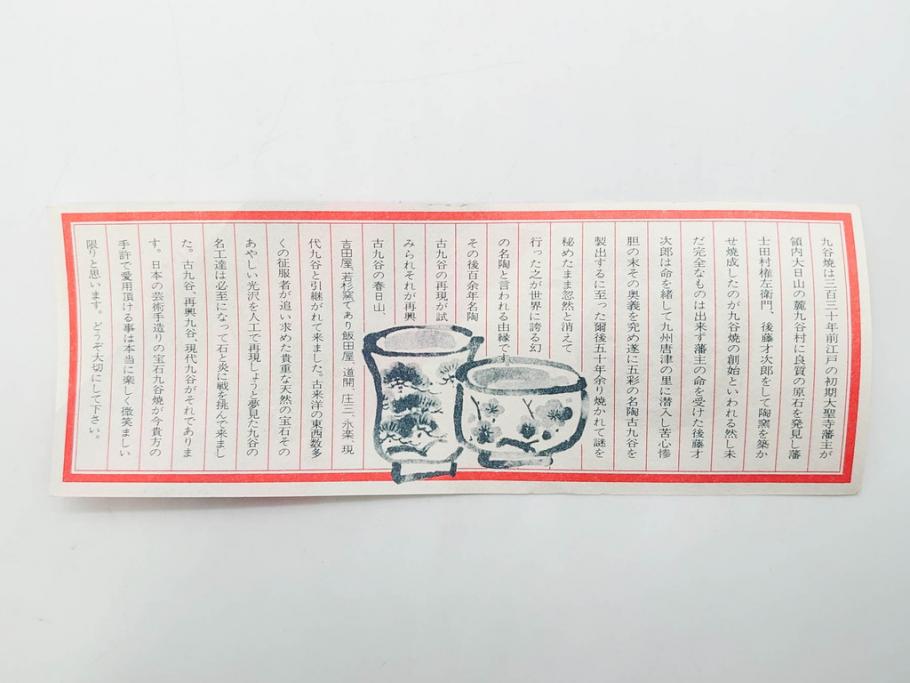 九谷焼は三百三十年前江戸の初期大聖寺藩主が
領内大日山の麓九谷村に良質の原石を発見し藩
士田村権左衛門、後藤才次郎をして陶窯を築か
せ焼成したのが九谷焼の創始といわれる然し未
だ完全なものは出来ず藩主の命を受けた後藤才
次郎は命を緒して九州唐津の里に潜入し苦心惨
胆の末その奥義を究め遂に五彩の名陶古九谷を
製出するに至った爾後五十年余り焼かれて謎を
秘めたまま忽然と消えて
行った之が世界に誇る幻
の名陶と言われる由縁です
その後百余年名陶
古九谷の再現が試
みられそれが再興
古九谷の春日山、
吉田屋、若杉窯であり飯田屋、道開、庄三、永楽、現
代九谷と引継がれて来ました。古来洋の東西数多
くの征服者が追い求めた貴重な天然の宝石その
あやしい光沢を人工で再現しょうと夢見た九谷の
名工達は必至になって石と炎に戦を挑んで来まし
た。古九谷、再興九谷、現代九谷がそれでありま
す。日本の芸術手造りの宝石九谷焼が今貴方の
手許で愛用頂ける事は本当に楽しく微笑ましい
限りと思います。どうぞ大切にして下さい。